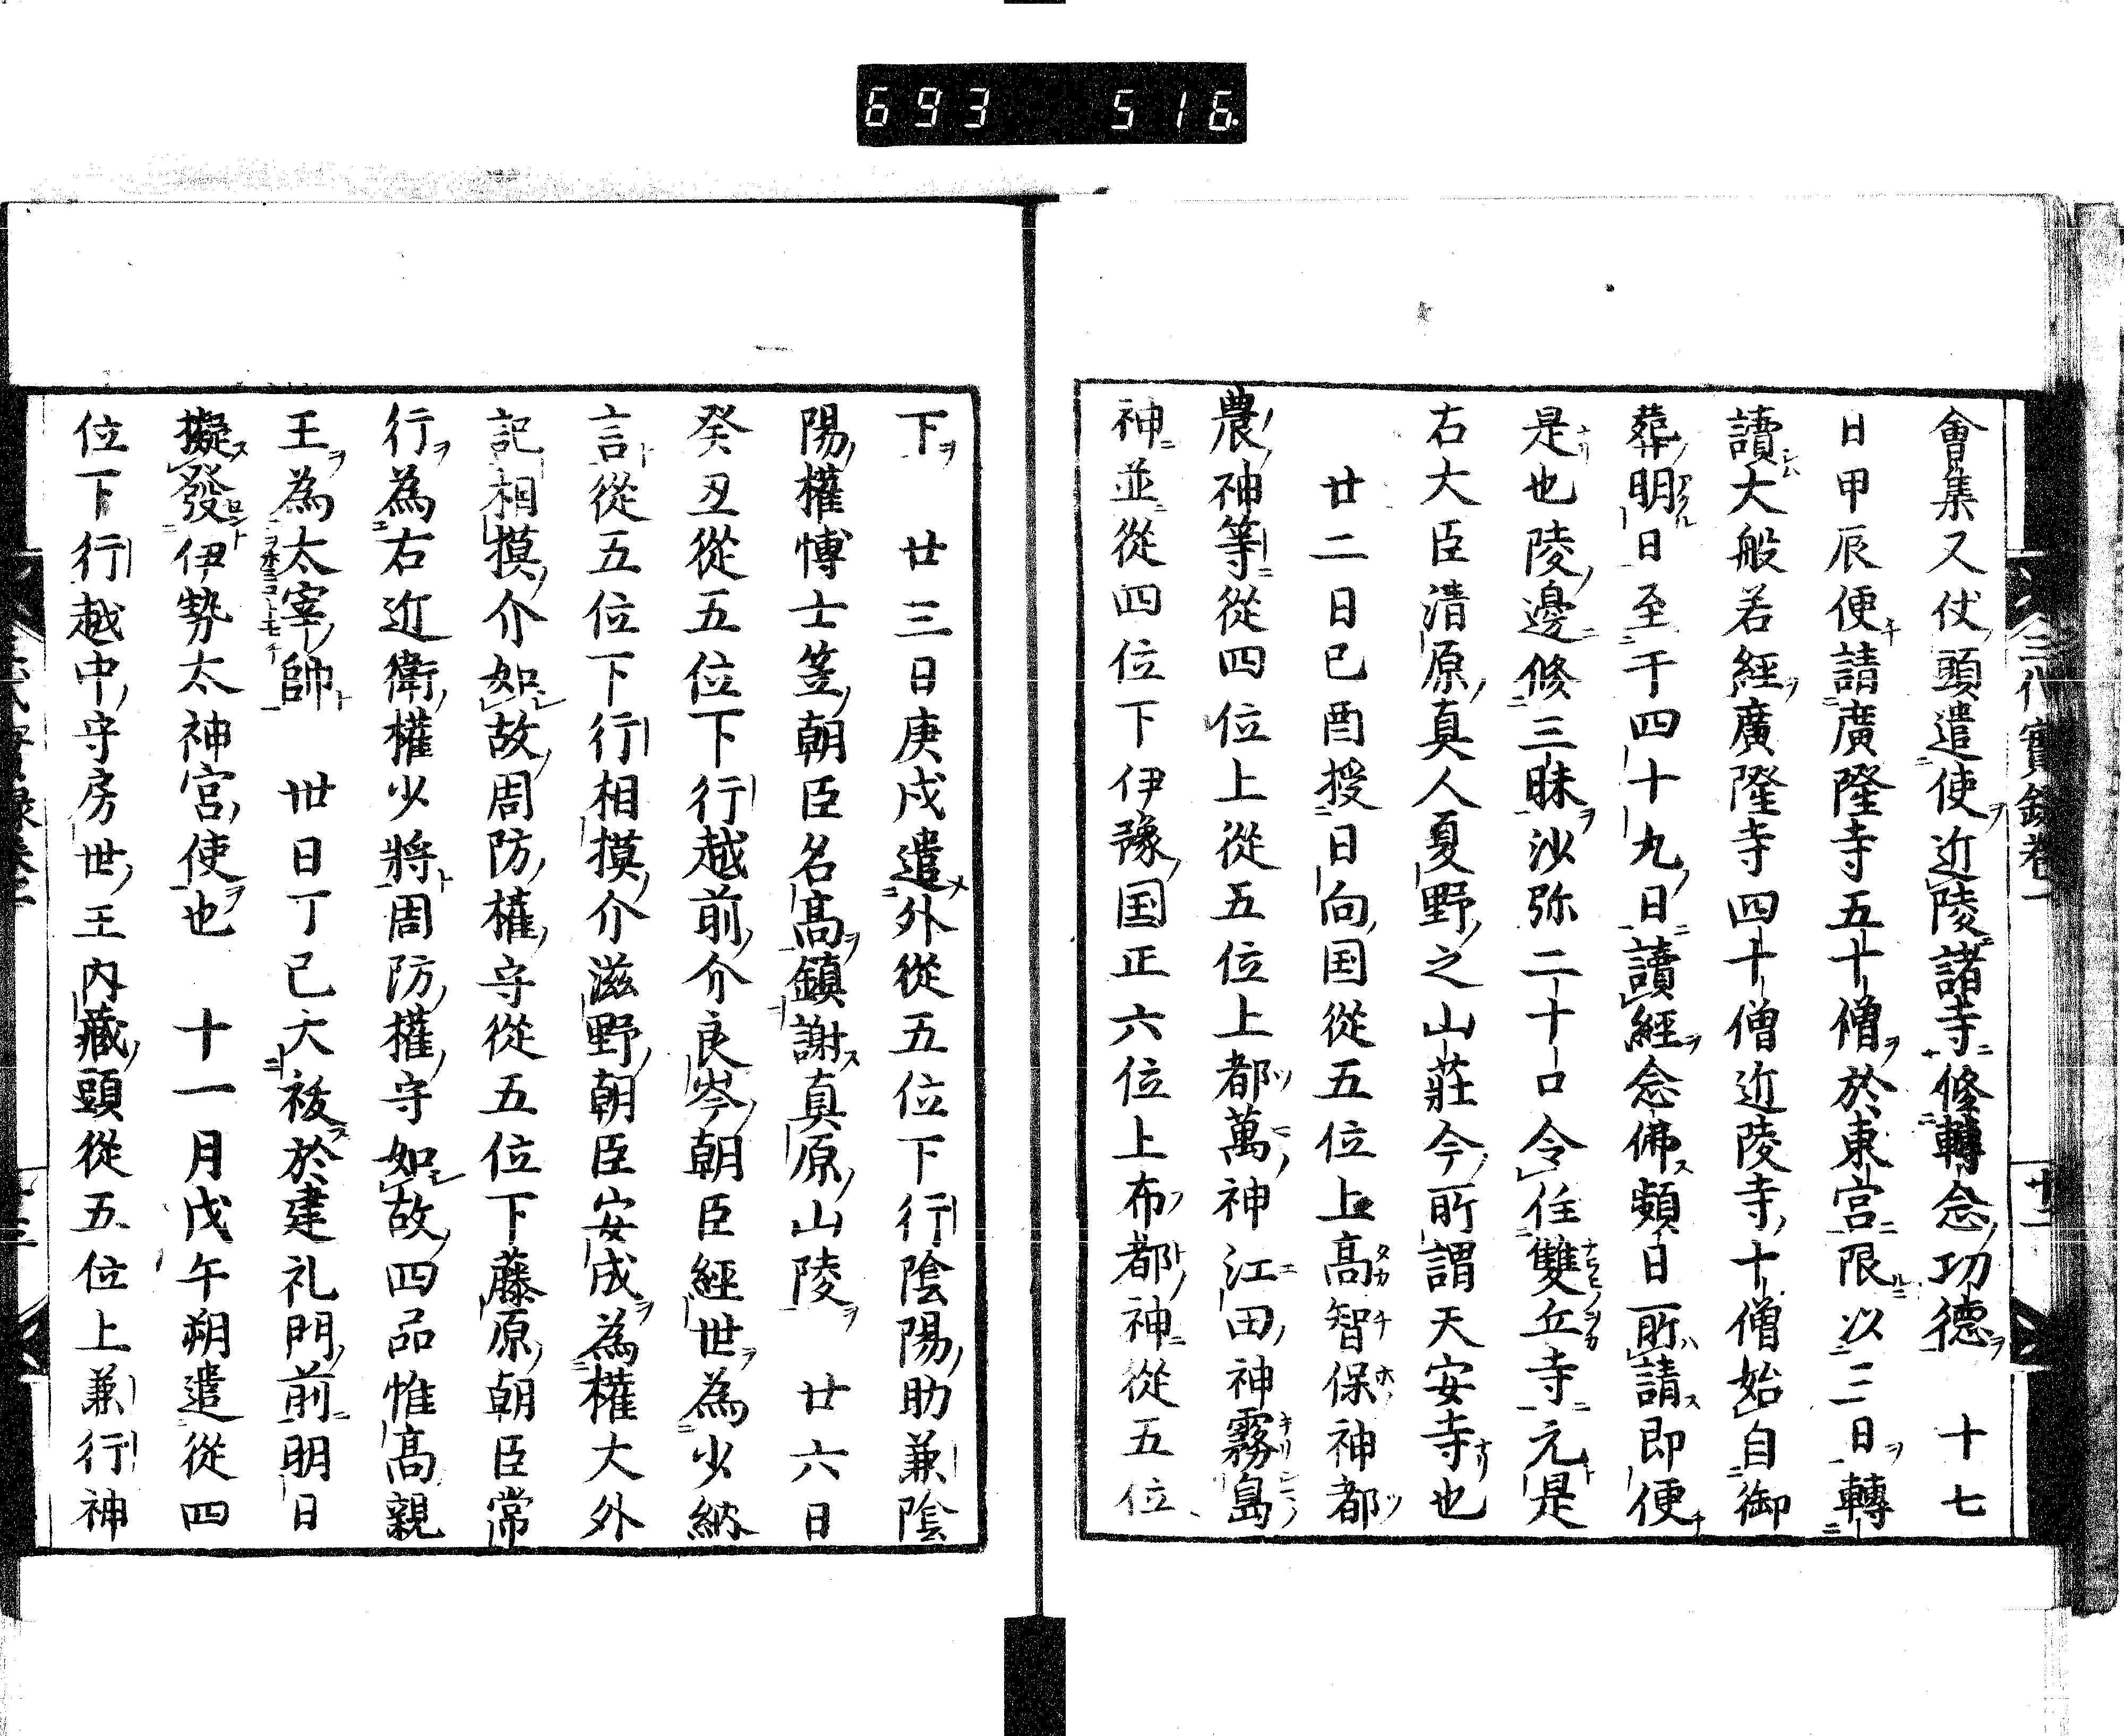 693 516
會集又仗頭遣使近陵諸寺修轉念功德　十七
日甲辰便請廣隆寺五十僧於東宮限以三日轉
讀大般若經廣隆寺四十僧近陵寺十僧始自御
葬明日至于四十九日讀經念佛頻日所請即便
是也陵邊修三昧沙弥二十口令住雙丘寺元是
右大臣清原真人夏野之山莊今所謂天安寺也
廿二日己酉授日向国從五位上高智保神都
農神等從四位上從五位上都萬神江田神霧島
神並從四位下伊豫国正六位上布都神從五位
下　廿三日庚戌遣外從五位下行陰陽助兼陰
陽權博士笠朝臣名高鎮謝真原山陵　廿六日
癸丑從五位下行越前介良岑朝臣經世為少納
言從五位下行相摸介滋野朝臣安成為權大外
記相摸介如故周防權守從五位下藤原朝臣常
行為右近衛權少將周防權守如故四品惟高親
王為太宰帥　卅日丁巳大祓於建礼門前明日
擬發伊勢太神宮使也　十一月戊午朔遣從四
位下行越中守房世王內藏頭從五位上兼行神